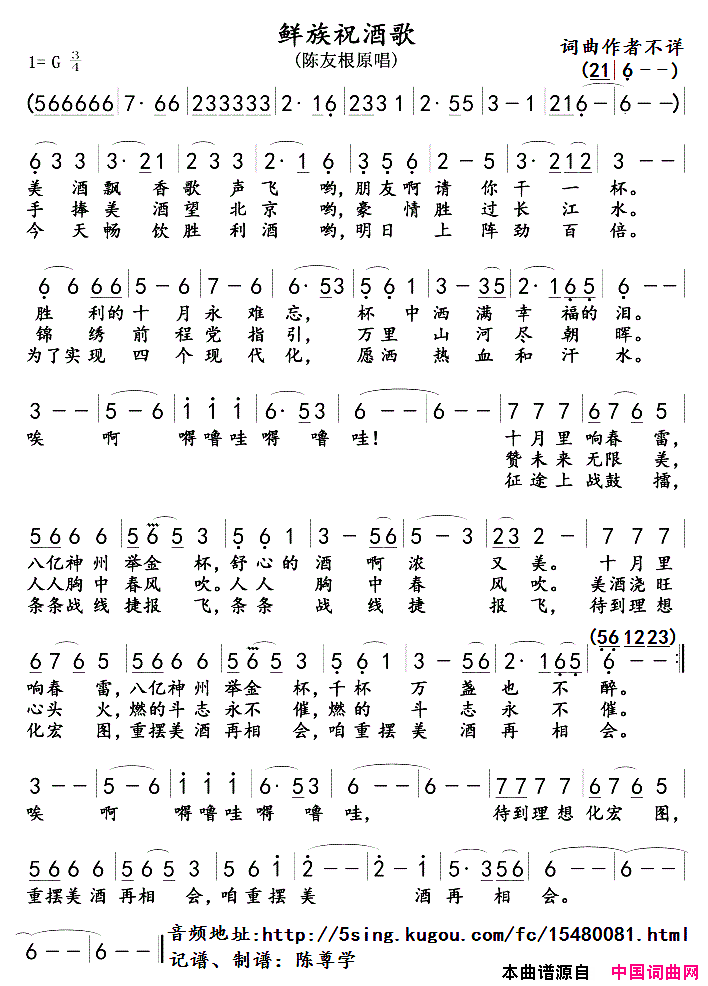 鲜族祝酒歌
词曲作者不详
1= G 3/4
(陈友根原唱)
(21| 6 - -)
(566666 | 7· 66 | 233333 | 2· 16 | 233333 | 2· 55 | 3 - 1 | 216 - | 6 - -)
6 3 3 | 3· 21 | 2 3 3 | 2· 1 6 | 3 5 6 | 2 - 5 | 3· 212 | 3 - - |
美 酒 飘 香 歌 声 飞 哟, 朋 友 啊 请 你 干 一 杯。
手 捧 美 酒 望 北 京 哟, 豪 情 胜 过 长 江 水。
今 天 畅 饮 胜 利 酒 哟, 明 日 上 阵 劲 百 倍。
6 6 66 | 5 - 6 | 7 - 6 | 6· 53 | 6 6 1 | 3 - 35 | 2· 165 | 6 - - |
胜 利 的 十 月 永 难 忘, 杯 中 洒 满 幸 福 的 泪。
锦 绣 前 程 党 指 引, 万 里 山 河 尽 朝 晖。
为了实现 四 个 现 代 化, 愿 洒 热 血 和 汗 水。
3 - - | 5 - 6 | i i i | 6· 53 | 6 - - | 6 - - | 7 7 7 | 67 6 5 |
唉 啊 嘚噜哇 嘚 噜 哇! 十月里 响春 雷,
赞未来 无限 美,
征途上 战鼓 擂,
5666 6 | 565 3 | 5 6 1 | 3 - 56 | 5 - 3 | 23 2 - | 7 7 7 |
八亿神 州 举金 杯, 舒 心 的 酒 啊 浓 又 美。 十 月 里
人人胸 中 春风 吹。 人 人 胸 中 春 风 吹。 美酒浇 旺
条条战 线 捷报 飞, 条 条 战 线 捷 报 飞, 待到理 想
(561223)
67 6 5 | 5666 6 | 565 3 | 5 6 1 | 3 - 56 | 2· 165 | 6 - - :‖
响春 雷, 八亿神 州 举金 杯, 千 杯 万 盏 也 不 醉。
心头 火, 燃的斗 志 永不 催, 燃 的 斗 志 永 不 催。
化宏 图, 重摆美 酒 再相 会, 咱 重 摆 美 酒 再 相 会。
3 - - | 5 - 6 | i i i | 6· 53 | 6 - - | 6 - - | 7777 7 | 67 6 5 |
唉 啊 嘚噜哇 嘚 噜 哇, 待到理 想 化宏 图,
5666 6 | 565 3 | 5 6 i | 2 - - | 2 - i | 5· 356 | 6 - - |
重摆美 酒 再相 会, 咱 重 摆 美 酒 再 相 会。
6 - - | 6 - - ‖
音频地址:http://5sing.kugou.com/fc/15480081.html
记谱、制谱: 陈尊学
本曲谱源自 中国词曲网